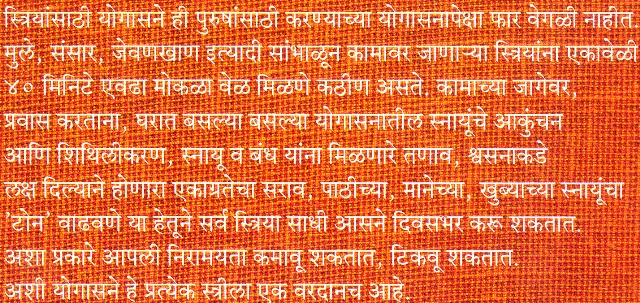 स्त्रियांसाठी योगासने ही पुरुषांसाठी करण्याच्या योगासनापेक्षा फार वेगळी नाहीत
मुले, संसार, जेवणखाण इत्यादी सांभाळून कामावर जाणाऱ्या स्त्रियांना एकावेळी
४० मिनिटे एवढा मोकळा वेळ मिळणे कठीण असते. कामाच्या जागेवर,
प्रवास करताना, घरात बसल्या बसल्या योगासनातील स्नायूंचे आकुंचन
आणि शिथिलीकरण, स्नायू व बंध यांना मिळणारे तणाव, श्वसनाकडे
लक्ष दिल्याने होणारा एकाग्रतेचा सराव, पाठीच्या, मानेच्या, खुब्याच्या स्नायूंचा
'टोन' वाढवणे या हेतूने सर्व स्त्रिया साधी आसने दिवसभर करू शकतात.
अशा प्रकारे आपली निरामयता कमावू शकतात, टिकवू शकतात.
अशी योगासने हे प्रत्येक स्त्रीला एक वरदानच आहे.